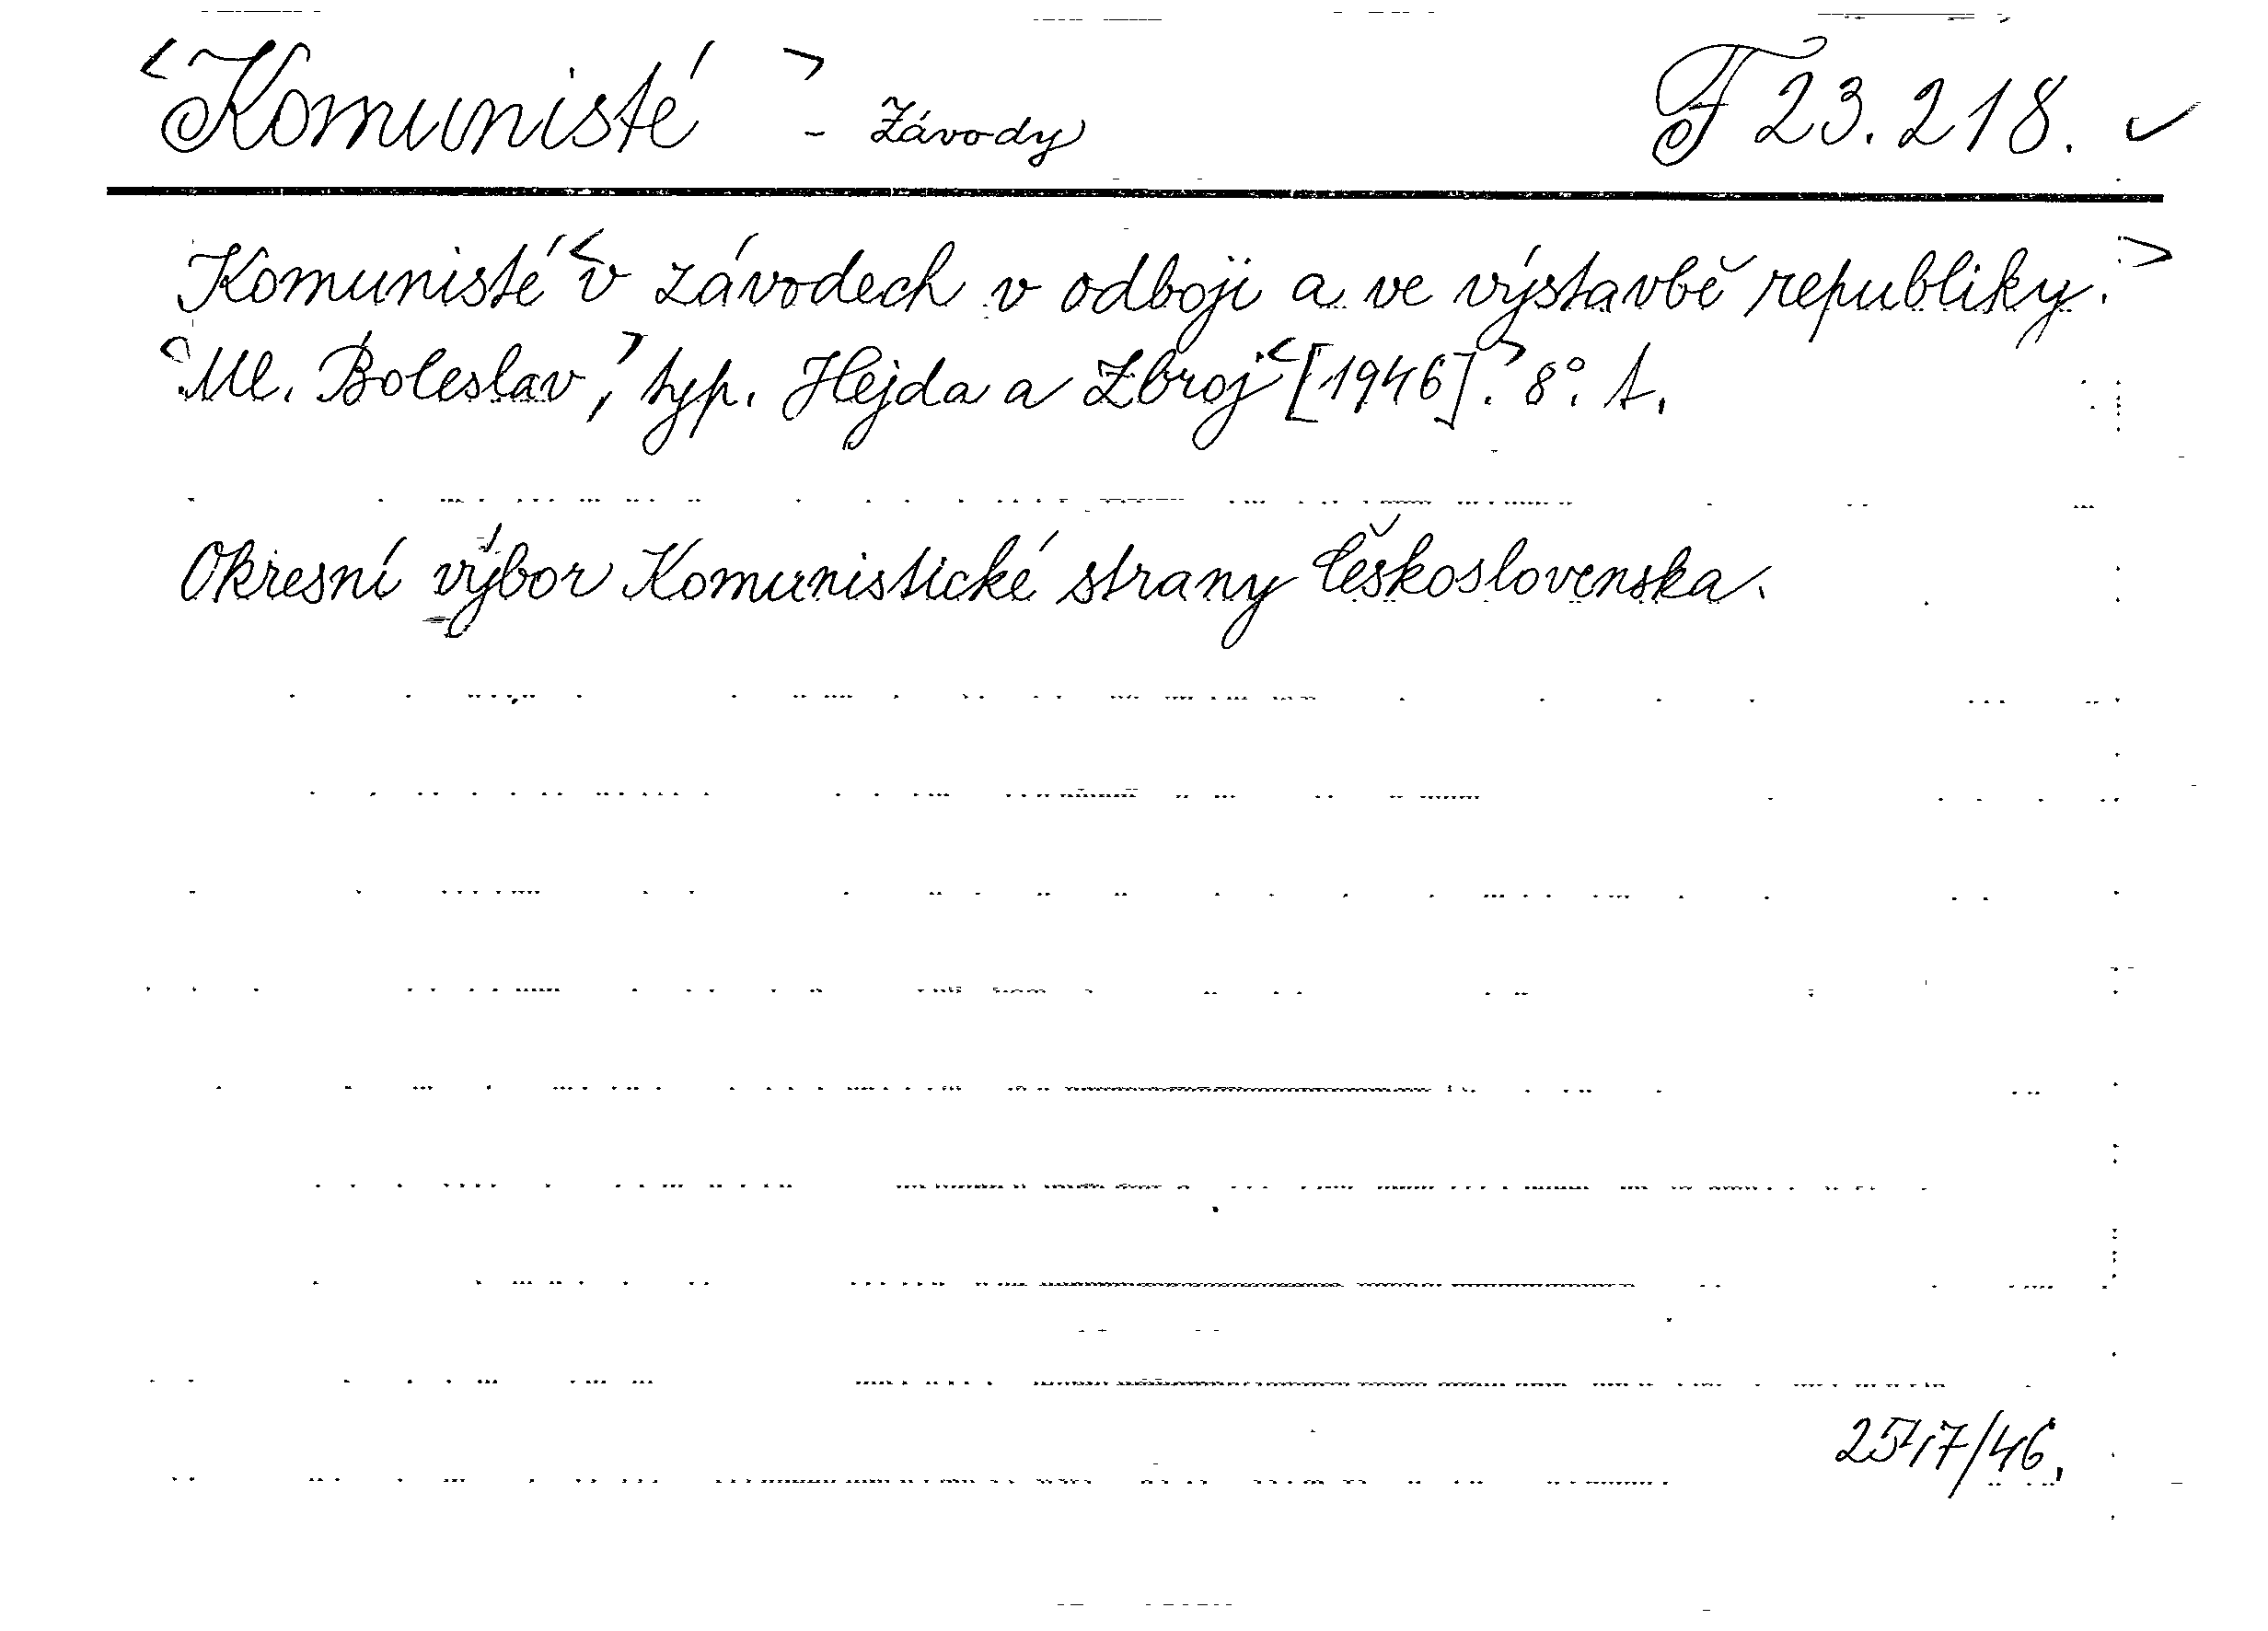 <Komunisté> - Závody F 23.218. ✓
Komunisté <v závodech v odboji a ve výstavbě republiky.>
<Ml. Boleslav,> typ. Hejda a Zbroj <[1946].> 8°. A.
Okresní výbor Komunistické strany Československa.
2517/46.